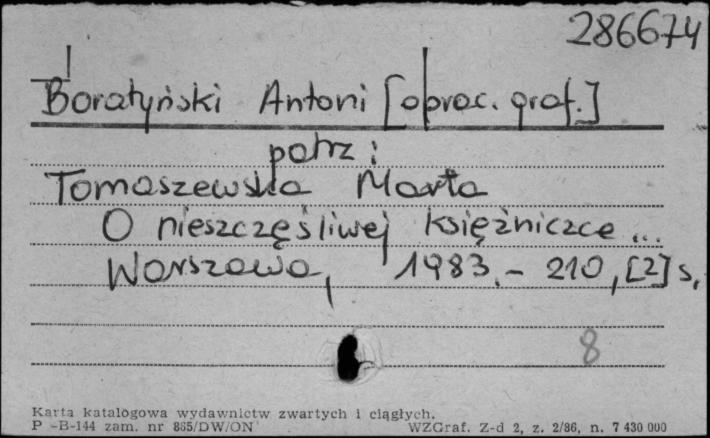 286674
Boratyński Antoni [oprac. graf.]
patrz:
Tomaszewska Marta
O nieszczęśliwej księżniczce ...
Warszawa, 1983.- 210, [2] s.
8
Karta katalogowa wydawnictw zwartych i ciągłych.
P-B-144 zam. nr 865/DW/ON WZGraf. Z-d 2, z. 2/86, n. 7 430 000